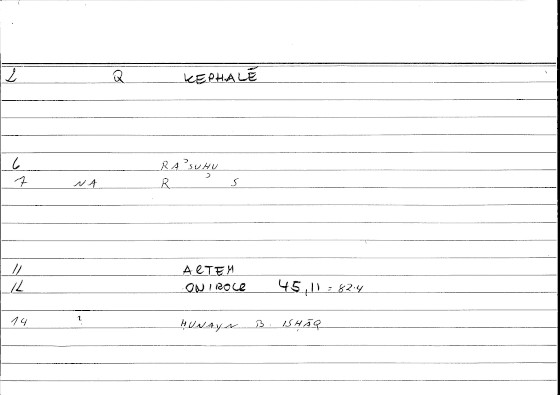 2 Q KEPHALĒ
6 RAʾSUHU
7 NA R ʾ S
11 ARTEM
12 ONIROCR 45,11 = 82.4
14 1 ḤUNAYN B. ISḤĀQ